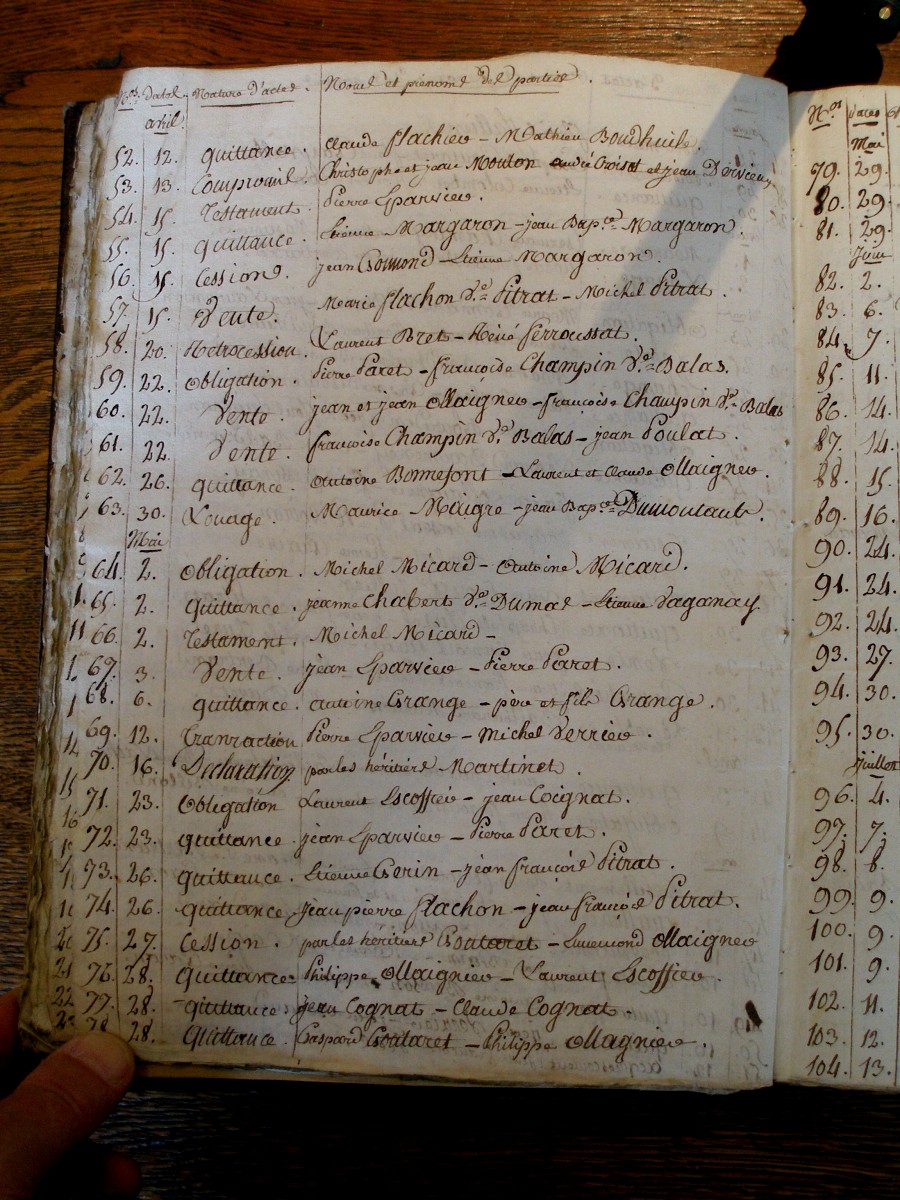 Nos. dates Nature d'actes. Noms et prénoms des parties.
avril.
52. 12. quittance. Claude flachier - Mathieu
53. 13. Compromis. Christophe et jean Mouton andré et jean Dervieux
54. 15. Testament. Pierre Eparvier.
55. 15. quittance. Etienne Margaron - jean Bapte. Margaron.
56. 15. Cession. jean - Etienne Margaron.
57. 15. Vente. Marie flachon Ve. Pitrat - Michel Pitrat.
58. 20. Retrocession. Laurent Bret - Réné ferroussat.
59. 22. obligation. Pierre Paret - françoise Champin Ve. Balas.
60. 22. Vente. jean et jean Ollaignier - françoise Champin Ve. Balas
61. 22. Vente. françoise Champin Ve. Balas - jean Poulat.
62. 26. quittance. Antoine Bonnefont - Laurent et Claude Ollaignier.
63. 30. Louage. Maurice Maigre - jean Bapte.
Mai
64. 2. obligation. Michel Micard - Antoine Micard.
65. 2. quittance. jeanne Chabert Ve. Dumas - Etienne Vaganay.
66. 2. Testament. Michel Micard -
67. 3. Vente. jean Eparvier - Pierre Paret.
68. 6. quittance. antoine Grange - père et fils Grange.
69. 12. Tranzaction Pierre Eparvier - Michel Verrier.
70. 16. Declaration par les héritiers Martinet.
71. 23. Obligation Laurent Escoffier - jean Coignat.
72. 23. quittance. jean Eparvier - Pierre Paret.
73. 26. quittance. Etienne Gerin - jean françois Pitrat.
74. 26. quittance. jean pierre flachon - jean françois Pitrat.
75. 27. Cession. par les héritiers Goutaret - Ennemond Ollaignier
76. 28. Quittance. Philippe Ollaignier - Laurent Escoffier.
77. 28. quittance. jean Cognat - Claude Cognat.
78. 28. Quittance. Gaspard Goutaret - Philippe Ollagnier.
Nos. dates
Mai
79. 29.
80. 29.
81. 29.
Juin
82. 2.
83. 6.
84. 7.
85. 11.
86. 14.
87. 14.
88. 15.
89. 16.
90. 24.
91. 24.
92. 24.
93. 27.
94. 30.
95. 30.
Juillet
96. 4.
97. 7.
98. 8.
99. 9.
100. 9.
101. 9.
102. 11.
103. 12.
104. 13.